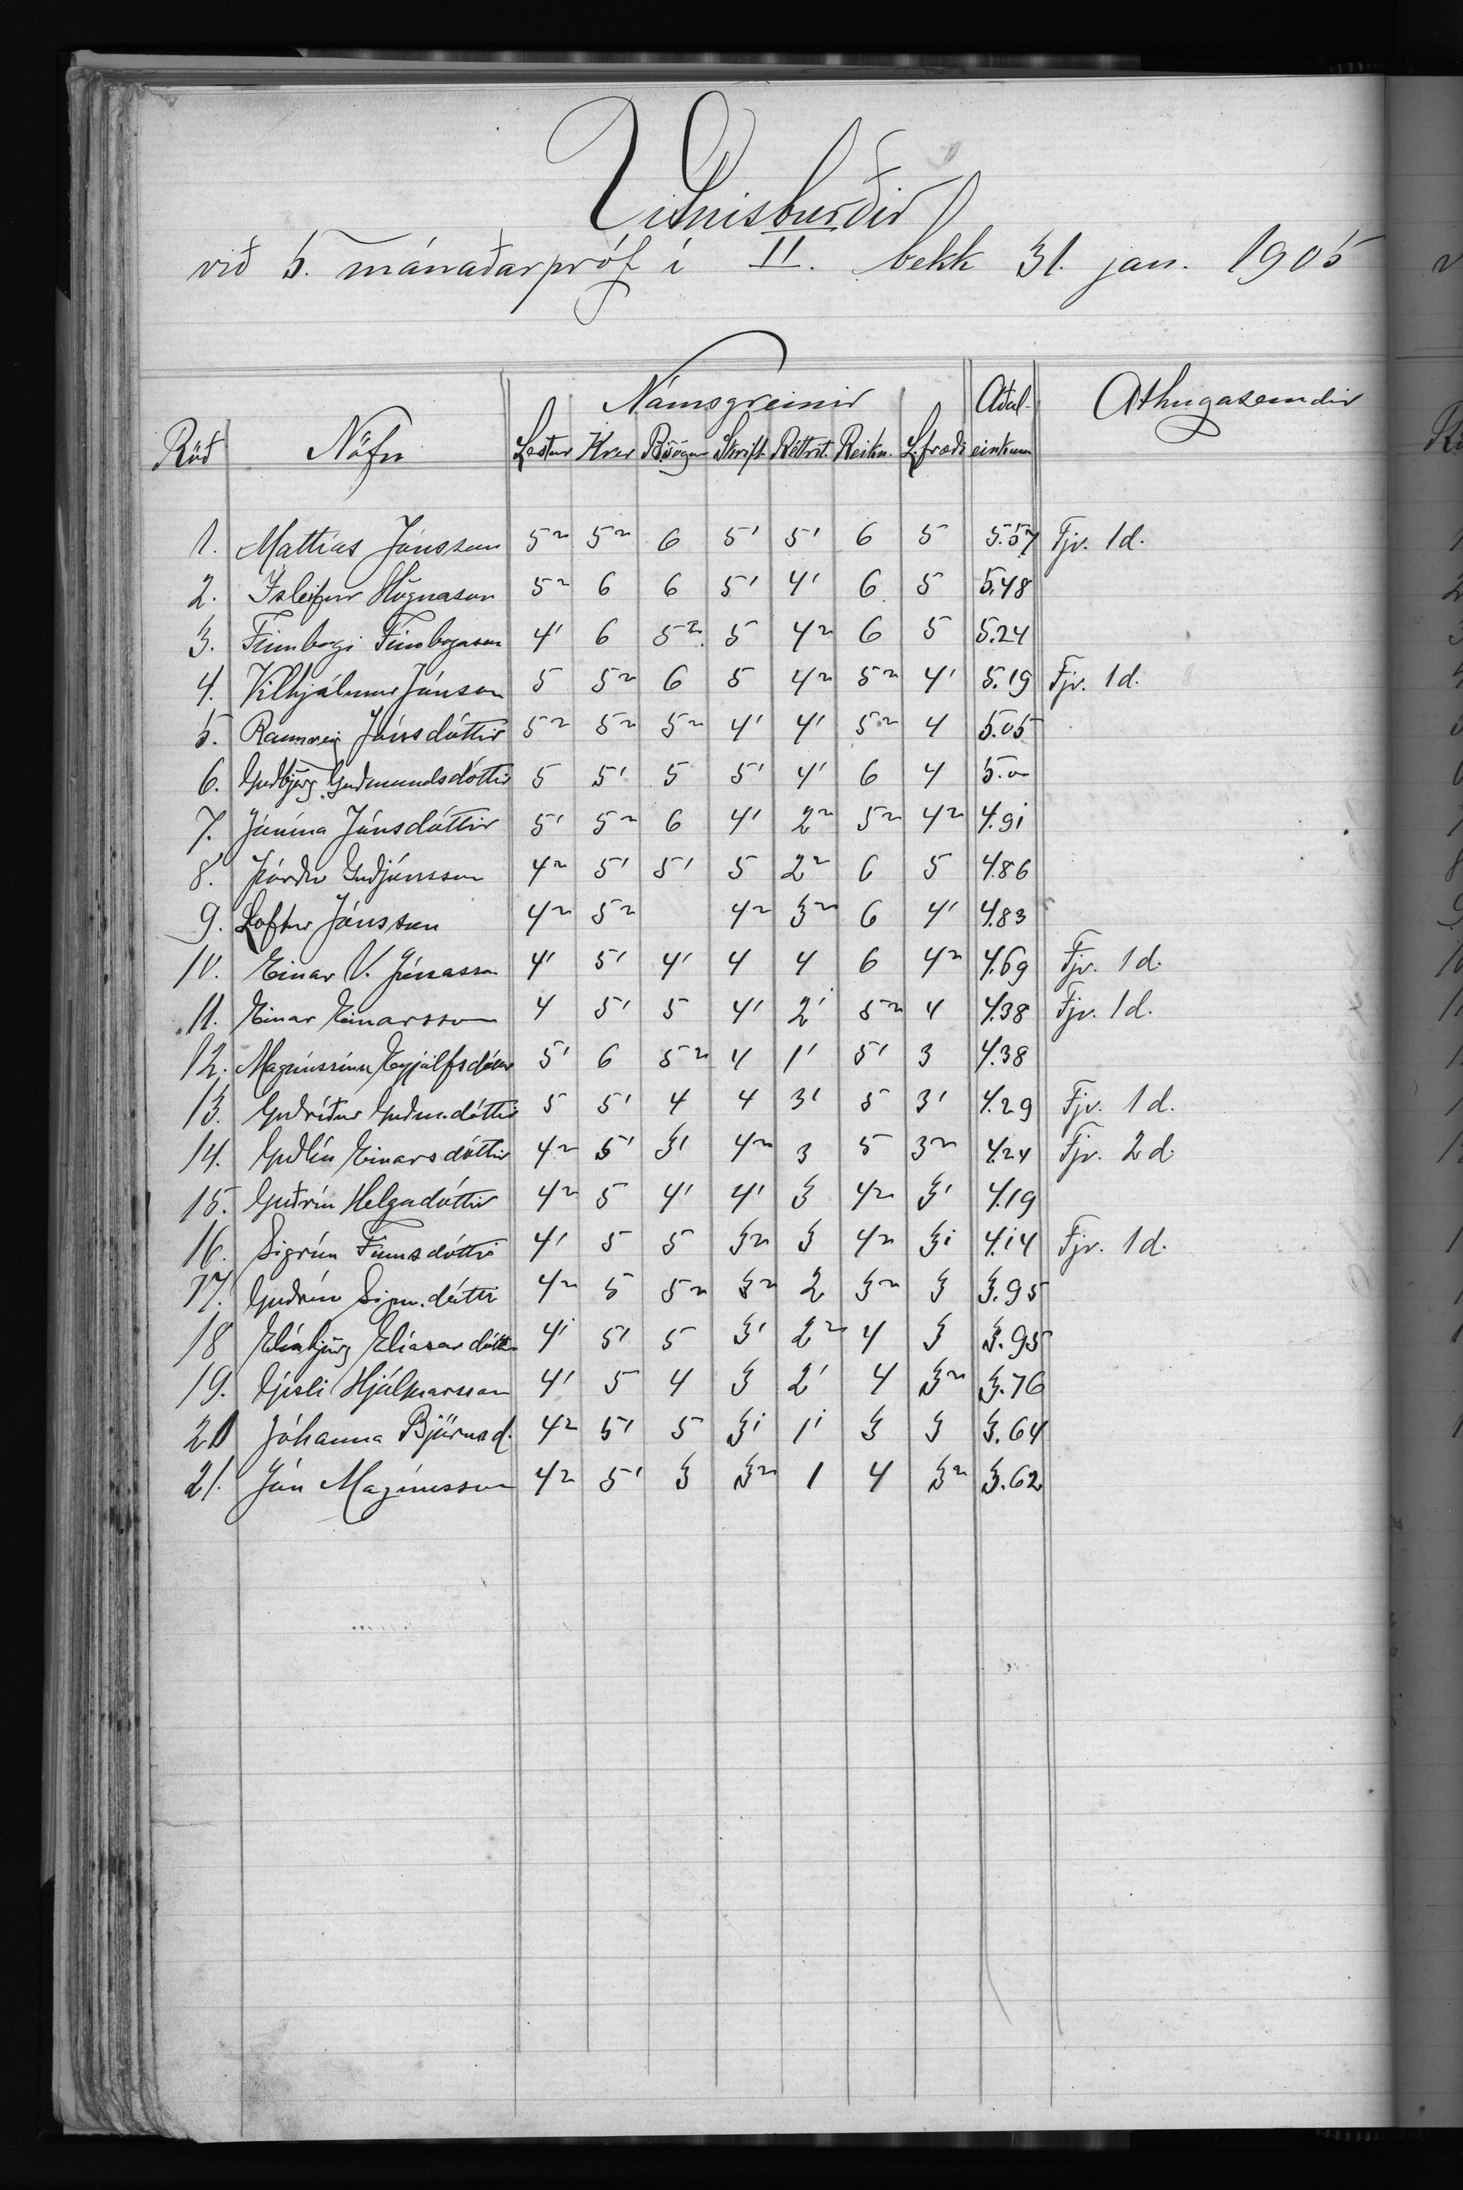 Vitnisburðir
við 5. mánaðarpróf í II. bekk 31. jan. 1905
Námsgreinir Aðal- Athugasemdir
Röð Nöfn Lestur Kver Bsögur Skrift Réttrit. Reikn. L.fræði einkunn
1. Mattías Jónsson 5² 5² 6 5' 5' 6 5 5.57 Fjv. 1d.
2. Ísleifur Högnason 5² 6 6 5' 4' 6 5 5.48
3. Finnbogi Finnbogason 4' 6 5² 5 4² 6 5 5.24
4. Vilhjálmur Jónsson 5 5² 6 5 4² 5² 4' 5.19 Fjv. 1d.
5. Rannveig Jónsdóttir 5² 5² 5² 4' 4' 5² 4 5.05
6. Guðbjörg Guðmundsdóttir 5 5' 5 5' 4' 6 4 5.00
7. Jónína Jónsdóttir 5' 5² 6 4' 2² 5² 4² 4.91
8. Þórður Guðjónsson 4² 5' 5' 5 2² 6 5 4.86
9. Loftur Jónsson 4² 5² 4² 3² 6 4' 4.83
10. Einar V. Jónasson 4' 5' 4' 4 4 6 4² 4.69 Fjv. 1d.
11. Einar Einarsson 4 5' 5 4' 2' 5² 4 4.38 Fjv. 1d.
12. Magnússína Eyjólfsdóttir 5' 6 5² 4 1' 5' 3 4.38
13. Guðríður Guðm.dóttir 5 5' 4 4 3' 5 3' 4.29 Fjv. 1d.
14. Guðlín Einarsdóttir 4² 5' 3' 4² 3 5 3² 4.24 Fjv. 2d.
15. Guðrún Helgadóttir 4² 5 4' 4' 3 4² 3' 4.19
16. Sigrún Finnsdóttir 4' 5 5 3² 3 4² 3' 4.14 Fjv. 1d.
17. Guðrún Sigm.dóttir 4² 5 5² 3² 2 3² 3 3.95
18 Elínbjörg Elíasardóttir 4' 5' 5 3' 2² 4 3 3.95
19. Gísli Hjálmarsson 4' 5 4 3 2' 4 3² 3.76
20 Jóhanna Björnsd. 4² 5' 5 3' 1' 3 3 3.64
21. Jón Magnússon 4² 5' 3 3² 1 4 3² 3.62